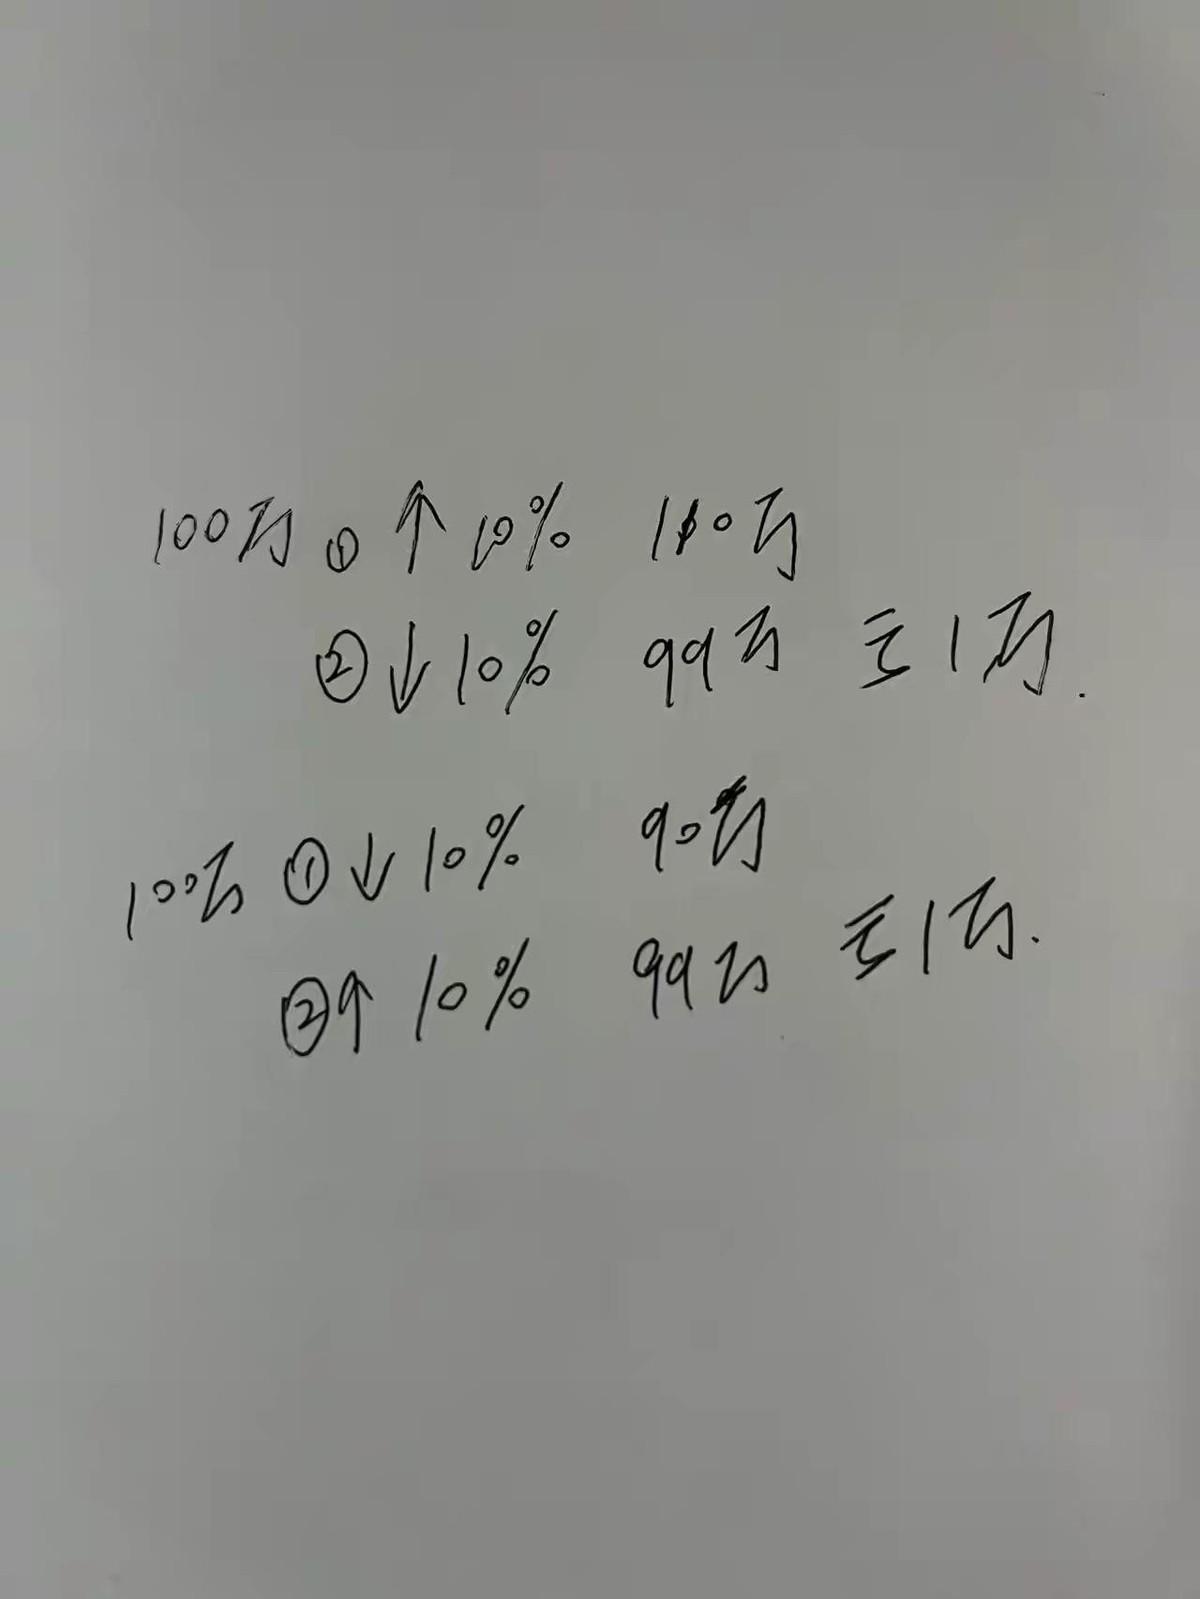 100万 ① ↑ 10% 110万
② ↓ 10% 99万 亏1万.
100万 ① ↓ 10% 90万
② ↑ 10% 99万 亏1万.